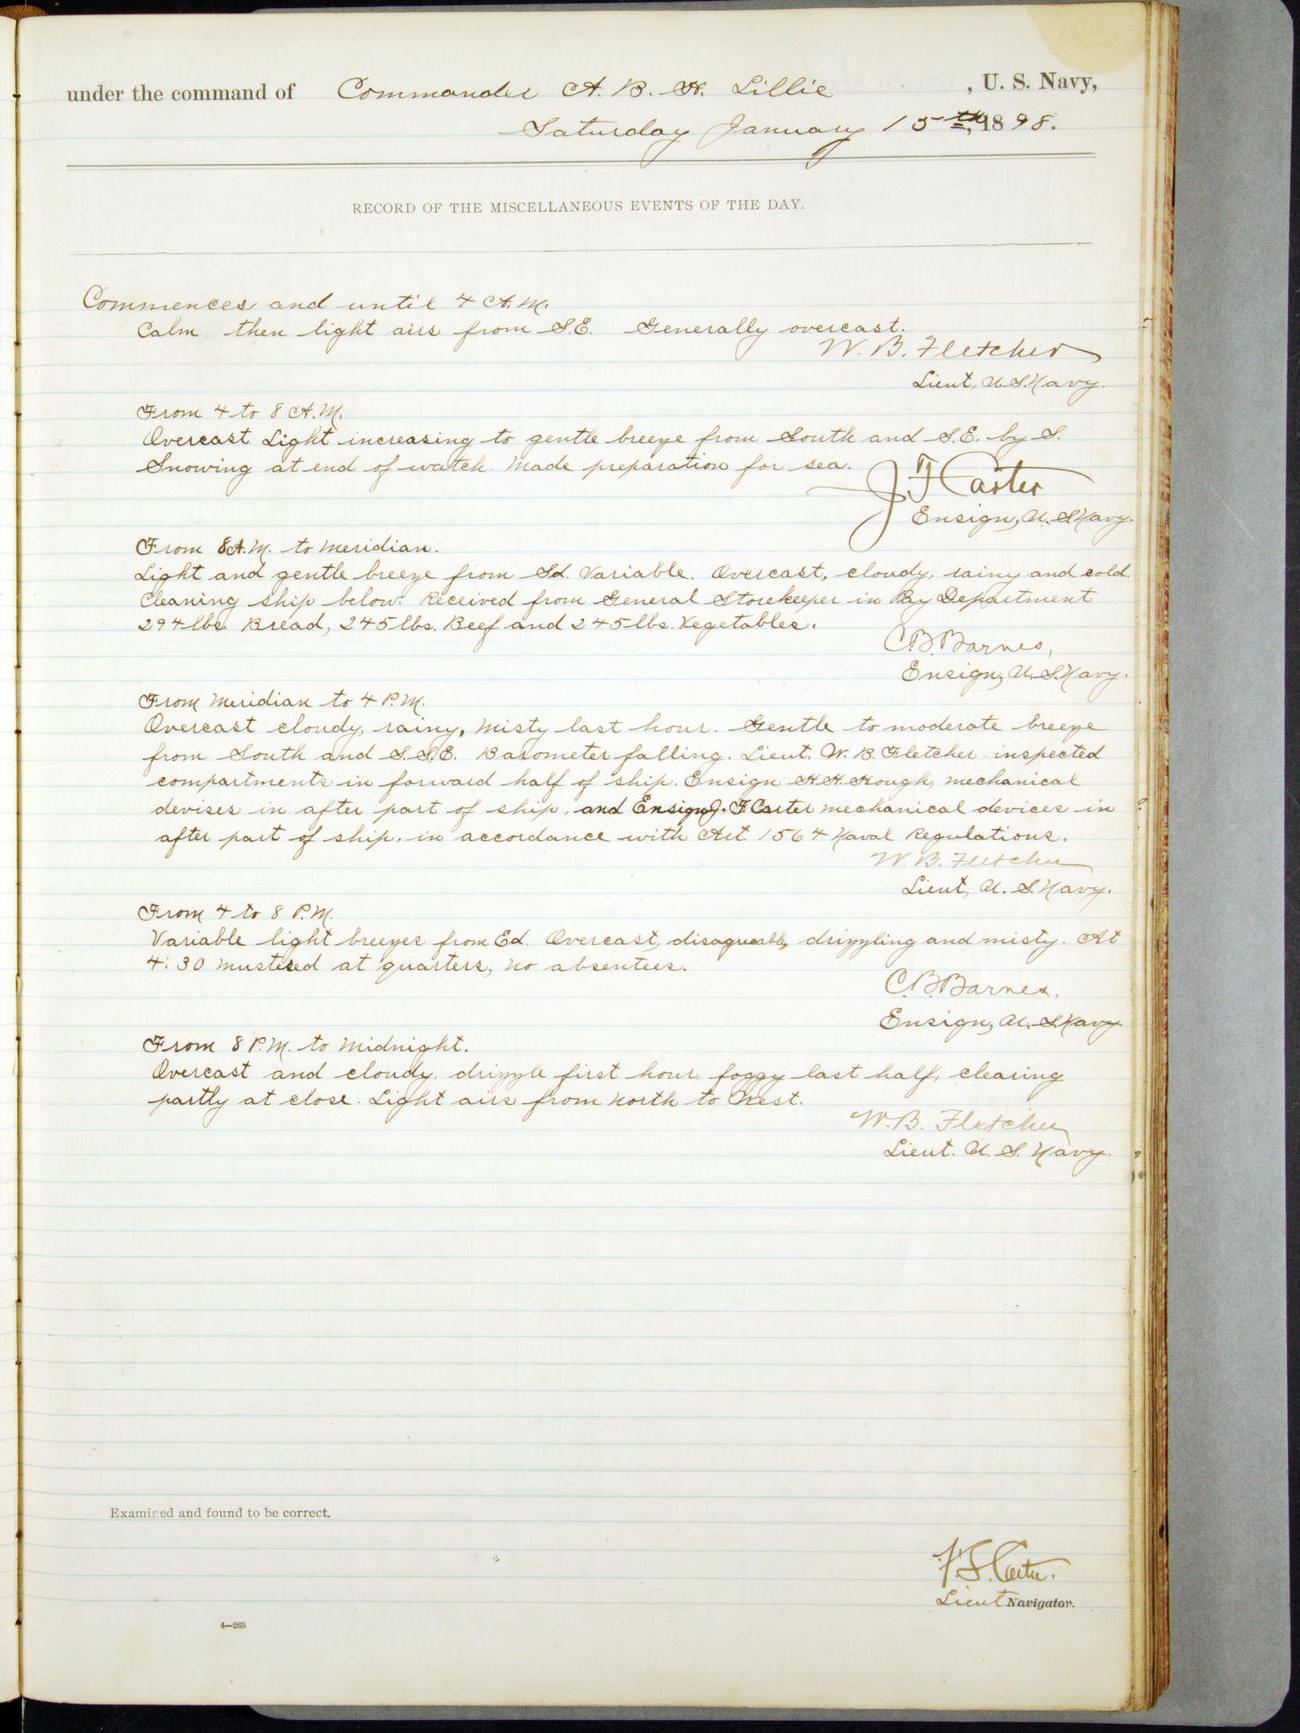 under the command of Commander A. B. H. Lillie , U. S. Navy,
Saturday January 15th, 1898.
RECORD OF THE MISCELLANEOUS EVENTS OF THE DAY.
Commences and until 4 A.M.
Calm then light airs from S.E. Generally overcast.
W. B. Fletcher
Lieut, U.S. Navy.
From 4 to 8 A.M.
Overcast. Light increasing to gentle breeze from South and S.E. by S.
Snowing at end of watch. Made preparation for sea.
J F Carter
Ensign, U. S. Navy.
From 8 A.M. to Meridian.
Light and gentle breeze from Sd. Variable. Overcast, cloudy, rainy and cold.
Cleaning ship below. Received from General Storekeeper in Pay Department
294 lbs. Bread, 245 lbs. Beef and 245 lbs. Vegetables.
C.B. Barnes,
Ensign, U. S. Navy.
From Meridian to 4 P.M.
Overcast cloudy, rainy, misty last hour. Gentle to moderate breeze
from South and S.S.E. Barometer falling. Lieut. W. B. Fletcher inspected
compartments in forward half of ship. Ensign H.H. Hough, mechanical
devises in after part of ship, and Ensign J. F. Carter mechanical devices in
after part of ship, in accordance with Art. 1564 Naval Regulations.
W. B. Fletcher
Lieut, U. S. Navy.
From 4 to 8 P.M.
Variable light breezes from Ed. Overcast, disagreeable, drizzling and misty. At
4:30 mustered at quarters, no absentees.
C.B. Barnes,
Ensign, U. S. Navy
From 8 P.M. to Midnight.
Overcast and cloudy, drizzle first hour, foggy last half, clearing
partly at close. Light airs from North to West.
W. B. Fletcher
Lieut. U. S. Navy.
Examined and found to be correct.
Carter.
Lieut Navigator.
4—265